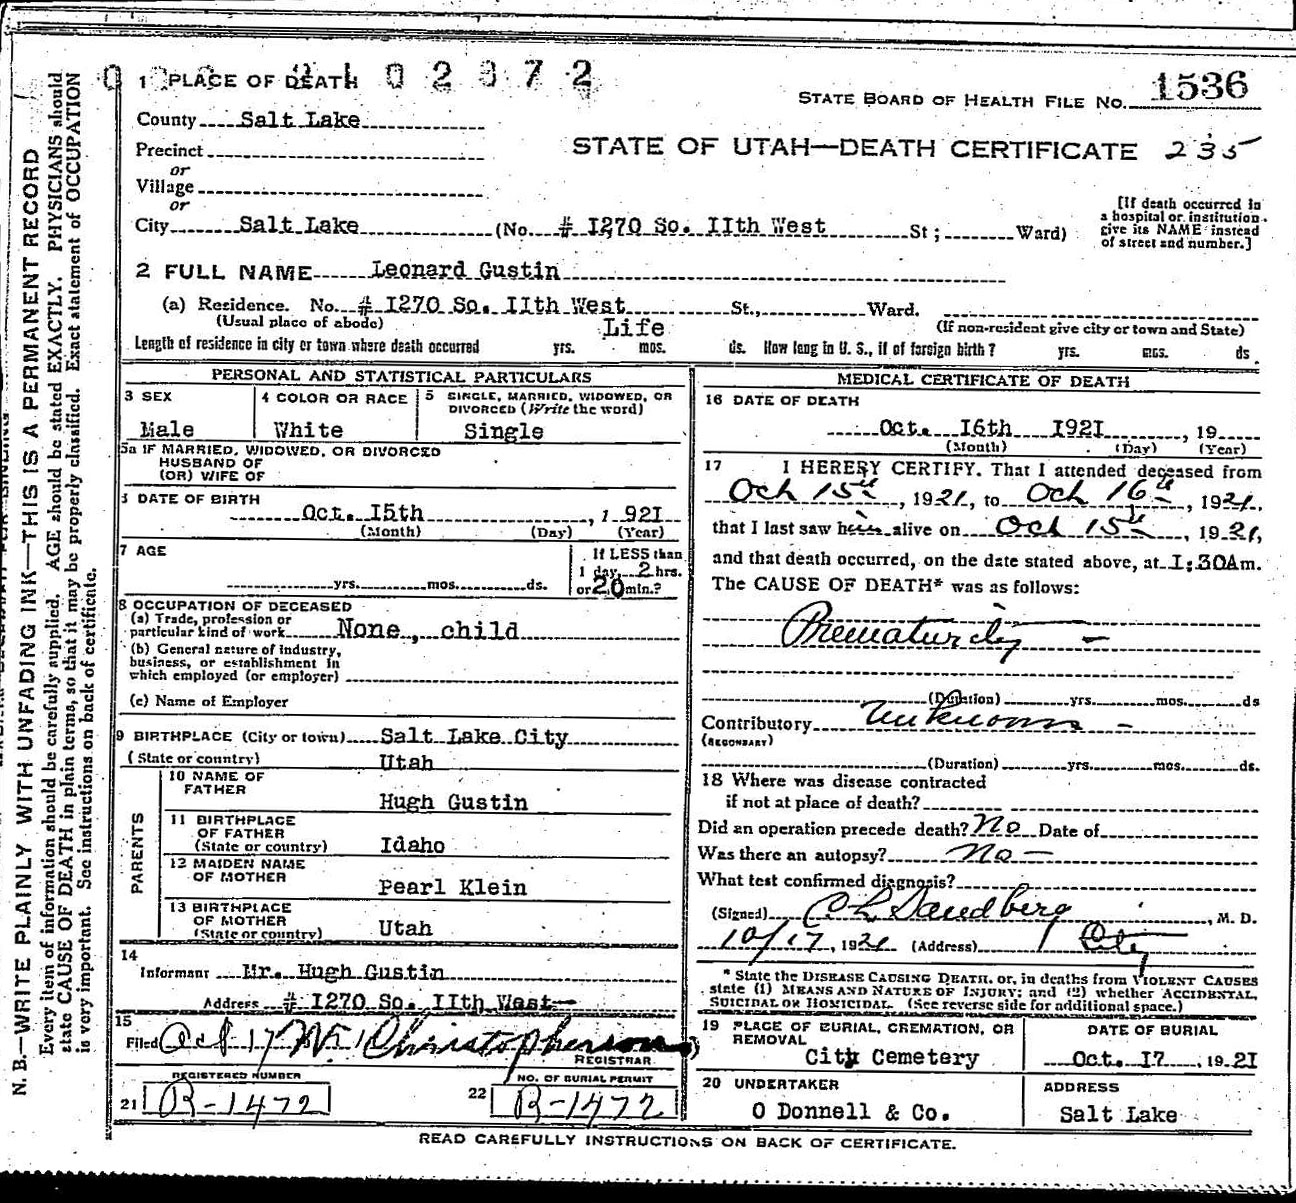 1 PLACE OF DEATH 2102372
STATE BOARD OF HEALTH FILE NO. 1536
County Salt Lake
STATE OF UTAH—DEATH CERTIFICATE 235
Precinct
or
Village
or
City Salt Lake (No. # I270 So. IIth West St ; Ward)
[If death occurred in
a hospital or institution
give its NAME instead
of street and number.]
2 FULL NAME Leonard Gustin
(a) Residence. No. # I270 So. IIth West St., Ward.
(Usual place of abode) Life (If non-resident give city or town and State)
Length of residence in city or town where death occurred yrs. mos. ds. How long in U. S., if of foreign birth ? yrs. mos. ds.
PERSONAL AND STATISTICAL PARTICULARS
3 SEX
Male
4 COLOR OR RACE
White
5 SINGLE, MARRIED, WIDOWED, OR
DIVORCED (Write the word)
Single
5a IF MARRIED, WIDOWED, OR DIVORCED
HUSBAND OF
(OR) WIFE OF
DATE OF BIRTH
Oct. I5th , 1 92I
(Month) (Day) (Year)
7 AGE
yrs. mos. ds.
If LESS than
1 day, 2 hrs.
or 20 min.?
8 OCCUPATION OF DECEASED
(a) Trade, profession or
particular kind of work None, child
(b) General nature of industry,
business, or establishment in
which employed (or employer)
(c) Name of Employer
9 BIRTHPLACE (City or town) Salt Lake City
(State or country) Utah
PARENTS
10 NAME OF
FATHER
Hugh Gustin
11 BIRTHPLACE
OF FATHER
(State or country) Idaho
12 MAIDEN NAME
OF MOTHER
Pearl Klein
13 BIRTHPLACE
OF MOTHER
(State or country) Utah
14
Informant Mr. Hugh Gustin
Address # I270 So. IIth West
15
Filed Oct 17 Christopherson
REGISTRAR
REGISTERED NUMBER
21 B-1472
NO. OF BURIAL PERMIT
22 B-1472
MEDICAL CERTIFICATE OF DEATH
16 DATE OF DEATH
Oct. I6th I92I , 19
(Month) (Day) (Year)
17 I HEREBY CERTIFY. That I attended deceased from
Oct 15th, 1921, to Oct 16th, 1921,
that I last saw him alive on Oct 15th, 1921,
and that death occurred, on the date stated above, at I:30Am.
The CAUSE OF DEATH* was as follows:
Prematurity —
(Duration) yrs. mos. ds
Contributory Unknown —
(SECONDARY)
(Duration) yrs. mos. ds.
18 Where was disease contracted
if not at place of death?
Did an operation precede death? No Date of
Was there an autopsy? no —
What test confirmed diagnosis?
(Signed) C L Sandberg , M. D.
10/17, 1921 (Address) City
* State the DISEASE CAUSING DEATH, or, in deaths from VIOLENT CAUSES
state (1) MEANS AND NATURE OF INJURY; and (2) whether ACCIDENTAL,
SUICIDAL OR HOMICIDAL. (See reverse side for additional space.)
19 PLACE OF BURIAL, CREMATION, OR
REMOVAL
City Cemetery
DATE OF BURIAL
Oct. I7 , 1921
20 UNDERTAKER
O Donnell & Co.
ADDRESS
Salt Lake
READ CAREFULLY INSTRUCTIONS ON BACK OF CERTIFICATE.
N. B.—WRITE PLAINLY WITH UNFADING INK—THIS IS A PERMANENT RECORD
Every item of information should be carefully supplied. AGE should be stated EXACTLY. PHYSICIANS should
state CAUSE OF DEATH in plain terms, so that it may be properly classified. Exact statement of OCCUPATION
is very important. See instructions on back of certificate.